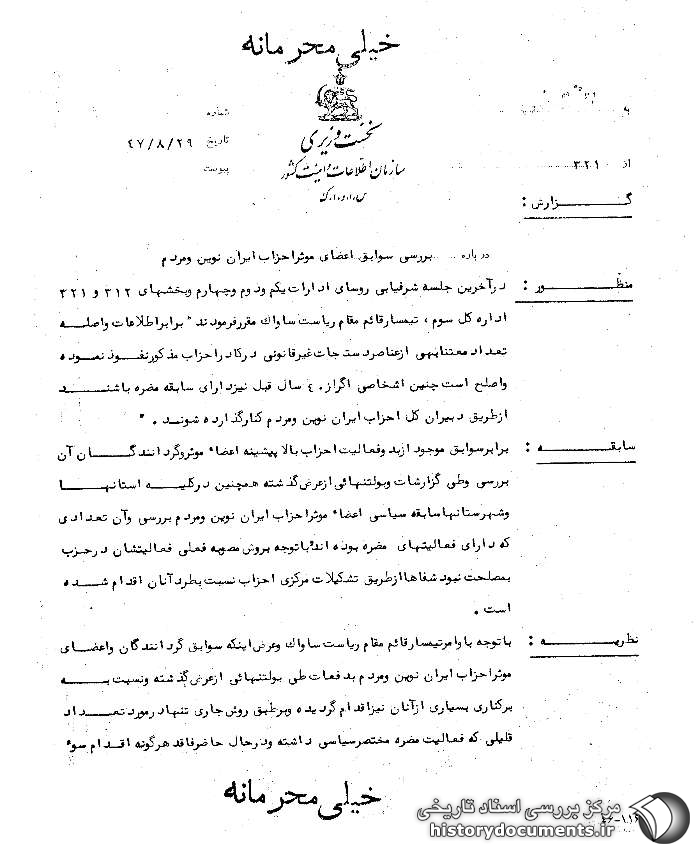 خیلی محرمانه
شماره
تاریخ ٤٧/٨/٢٩
پیوست
نخست وزیری
سازمان اطلاعات و امنیت کشور
س.ا.و.ا.ک
از ٣٢١
گزارش :
درباره بررسی سوابق اعضای موثر احزاب ایران نوین و مردم
منظور : در آخرین جلسه شرفیابی روسای ادارات یکم و دوم و چهارم و بخشهای ٣١٢ و ٣٢١
اداره کل سوم ، تیمسار قائم مقام ریاست ساواك مقرر فرمودند " برابر اطلاعات واصله
تعداد معتنابهی از عناصر دستجات غیرقانونی در کادر احزاب مذکور نفوذ نموده
واصلح است چنین اشخاصی اگر از ٤٠ سال قبل نیز دارای سابقه مضره باشند
از طریق دبیران کل احزاب ایران نوین و مردم کنار گذارده شوند . "
سابقه : برابر سوابق موجود از بدو فعالیت احزاب بالا پیشینه اعضاء موثر و گردانندگان آن
بررسی و طی گزارشات و بولتنهائی از عرض گذشته همچنین در کلیه استانها
و شهرستانها سابقه سیاسی اعضاء موثر احزاب ایران نوین و مردم بررسی و آن تعدادی
که دارای فعالیتهای مضره بوده اند با توجه بروش مصوبه فعلی فعالیتشان در حزب
بمصلحت نبود شفاها از طریق تشکیلات مرکزی احزاب نسبت بطرد آنان اقدام شده
است .
نظریه : با توجه باوامر تیمسار قائم مقام ریاست ساواك و عرض اینکه سوابق گردانندگان و اعضای
موثر احزاب ایران نوین و مردم بدفعات طی بولتنهائی از عرض گذشته و نسبت به
برکناری بسیاری از آنان نیز اقدام گردیده و برطبق روش جاری تنها در مورد تعداد
قلیلی که فعالیت مضره مختصر سیاسی داشته و در حال حاضر فاقد هرگونه اقدام سوء
خیلی محرمانه
مرکز بررسی اسناد تاریخی
historydocuments.ir